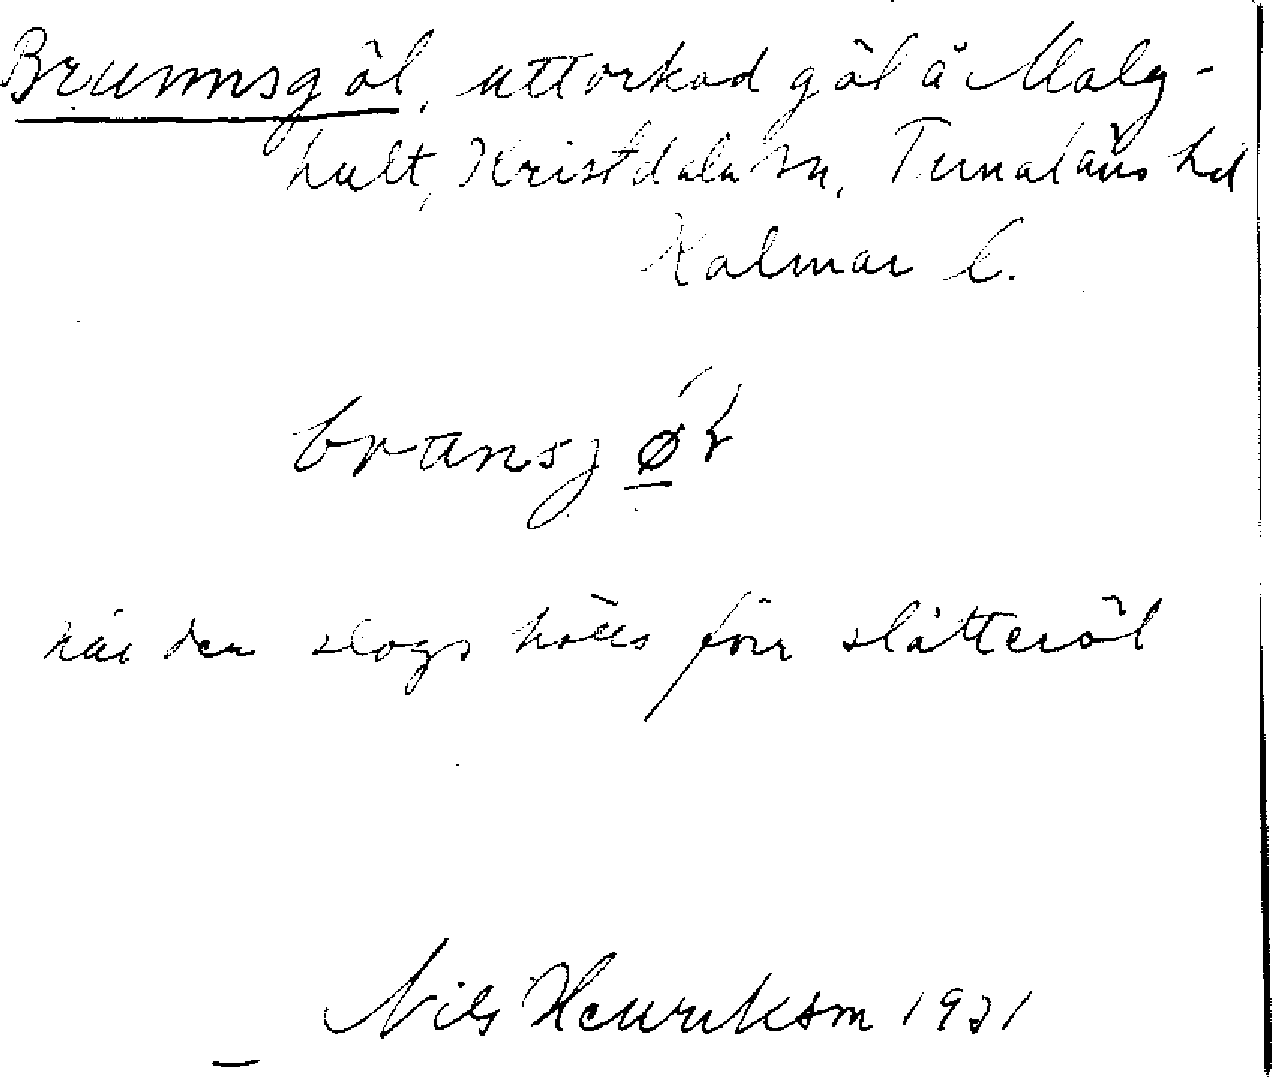 Brunnsgöl, uttorkad göl å Malg-
hult, Kristdala sn, Tunaläns hd
Kalmar l.
när den slogs hölls förr slåtteröl
Nils Henriksson 1921